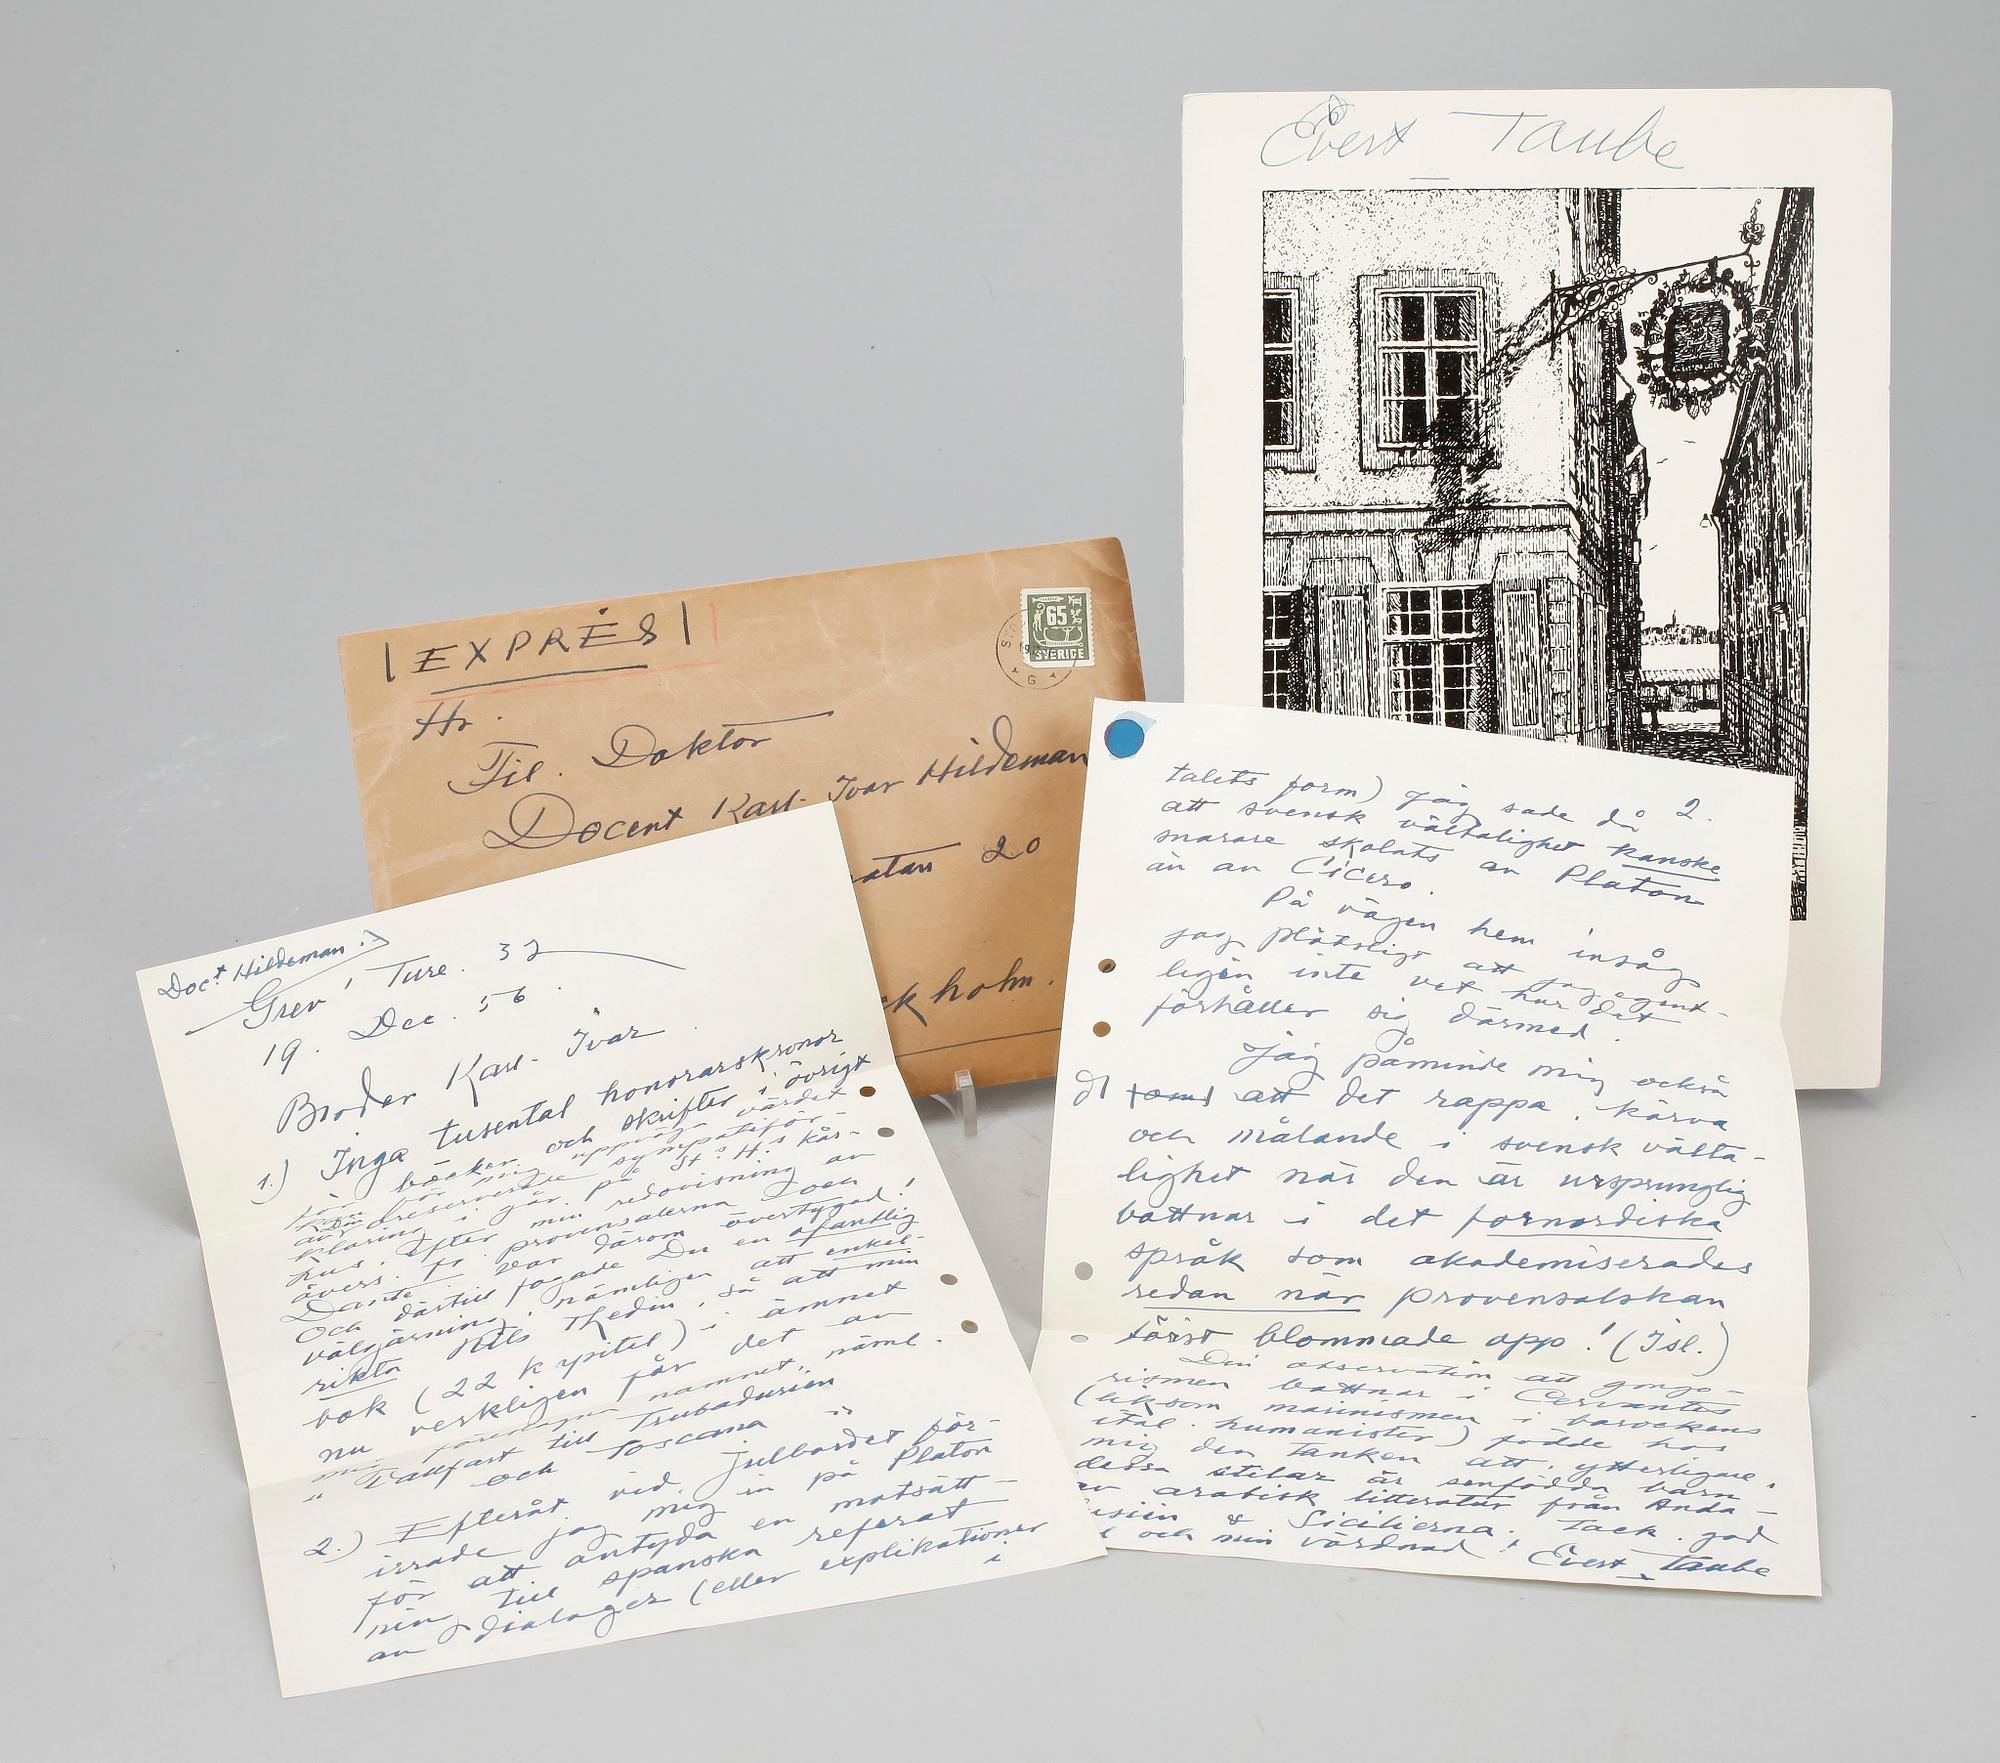 Evert Taube
EXPRÈS
65
SVERIGE
G
Hr.
Fil. Doktor
Docent Karl-Ivar Hildeman
atan 20
ckholm.
Doct Hildeman
Grev Ture. 32
19. Dec. 56.
Broder Karl-Ivar
1.) Inga tusental honorarskronor
för böcker och skrifter i övrigt
kan för mig uppväga värdet
av Din oreserverade sympatiför-
klaring i går på St. H:s kår-
hus. Efter min redovisning av
övers. fr. provensalerna och
Dante var därom övertygad!
Och därtill fogade Du en ofantlig
välgärning, nämligen att enkel-
rikta Nils Thedin, så att min
bok (22 kapitel) i ämnet
nu verkligen får det av
mig föreslagna namnet, näml.
"Vallfart till Trubadurien
och Toscana"
2.) Efteråt vid julbordet för-
irrade jag mig in på Platon
för att antyda en motsätt-
ning till spanska referat
av dialoger (eller explikationer
i
2.
talets form) Jag sade då
att svensk vältalighet kanske
snarare skolats av Platon
än av Cicero.
På vägen hem insåg
jag plötsligt att jag egent-
ligen inte vet hur det
förhåller sig därmed.
Jag påminde mig också
att det rappa, kärva
och målande i svensk välta-
lighet när den är ursprunglig
bottnar i det fornnordiska
språk som akademiserades
redan när provensalskan
först blommade opp! (Isl.)
Din observation att gongo-
rismen bottnar i Cervantes
(liksom marinismen i barockens
ital. humanister) födde hos
mig den tanken att ytterligare
dessa stilar är senfödda barn
av arabisk litteratur från Anda-
lusien & Sicilierna. Tack, god
och min vördnad! Evert Taube